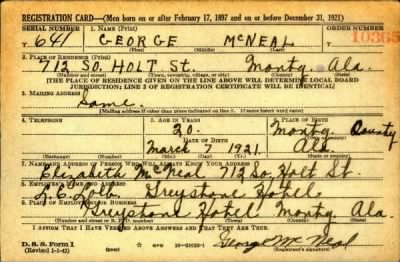 REGISTRATION CARD—(Men born on or after February 17, 1897 and on or before December 31, 1921)
SERIAL NUMBER 1. NAME (Print) ORDER NUMBER
T 641 GEORGE McNEAL T 10365
(First) (Middle) (Last)
2. PLACE OF RESIDENCE (Print)
712 SO. HOLT St. Montg. Ala.
(Number and street) (Town, township, village, or city) (County) (State)
[THE PLACE OF RESIDENCE GIVEN ON THE LINE ABOVE WILL DETERMINE LOCAL BOARD
JURISDICTION; LINE 2 OF REGISTRATION CERTIFICATE WILL BE IDENTICAL]
3. MAILING ADDRESS
Same
[Mailing address if other than place indicated on line 2. If same insert word same]
4. TELEPHONE 5. AGE IN YEARS 6. PLACE OF BIRTH
20. Montg. County
DATE OF BIRTH
March 7 1921. Ala.
7. NAME AND ADDRESS OF PERSON WHO WILL ALWAYS KNOW YOUR ADDRESS
Elizabeth McNeal 712 So. Holt St.
8. EMPLOYER'S NAME AND ADDRESS
Greystone Hotel
Greystone Hotel Montg. Ala.
I AFFIRM THAT I HAVE VERIFIED ABOVE ANSWERS AND THAT THEY ARE TRUE.
D. S. S. Form 1
(Revised 1-1-42)
George McNeal
(Registrant's signature)